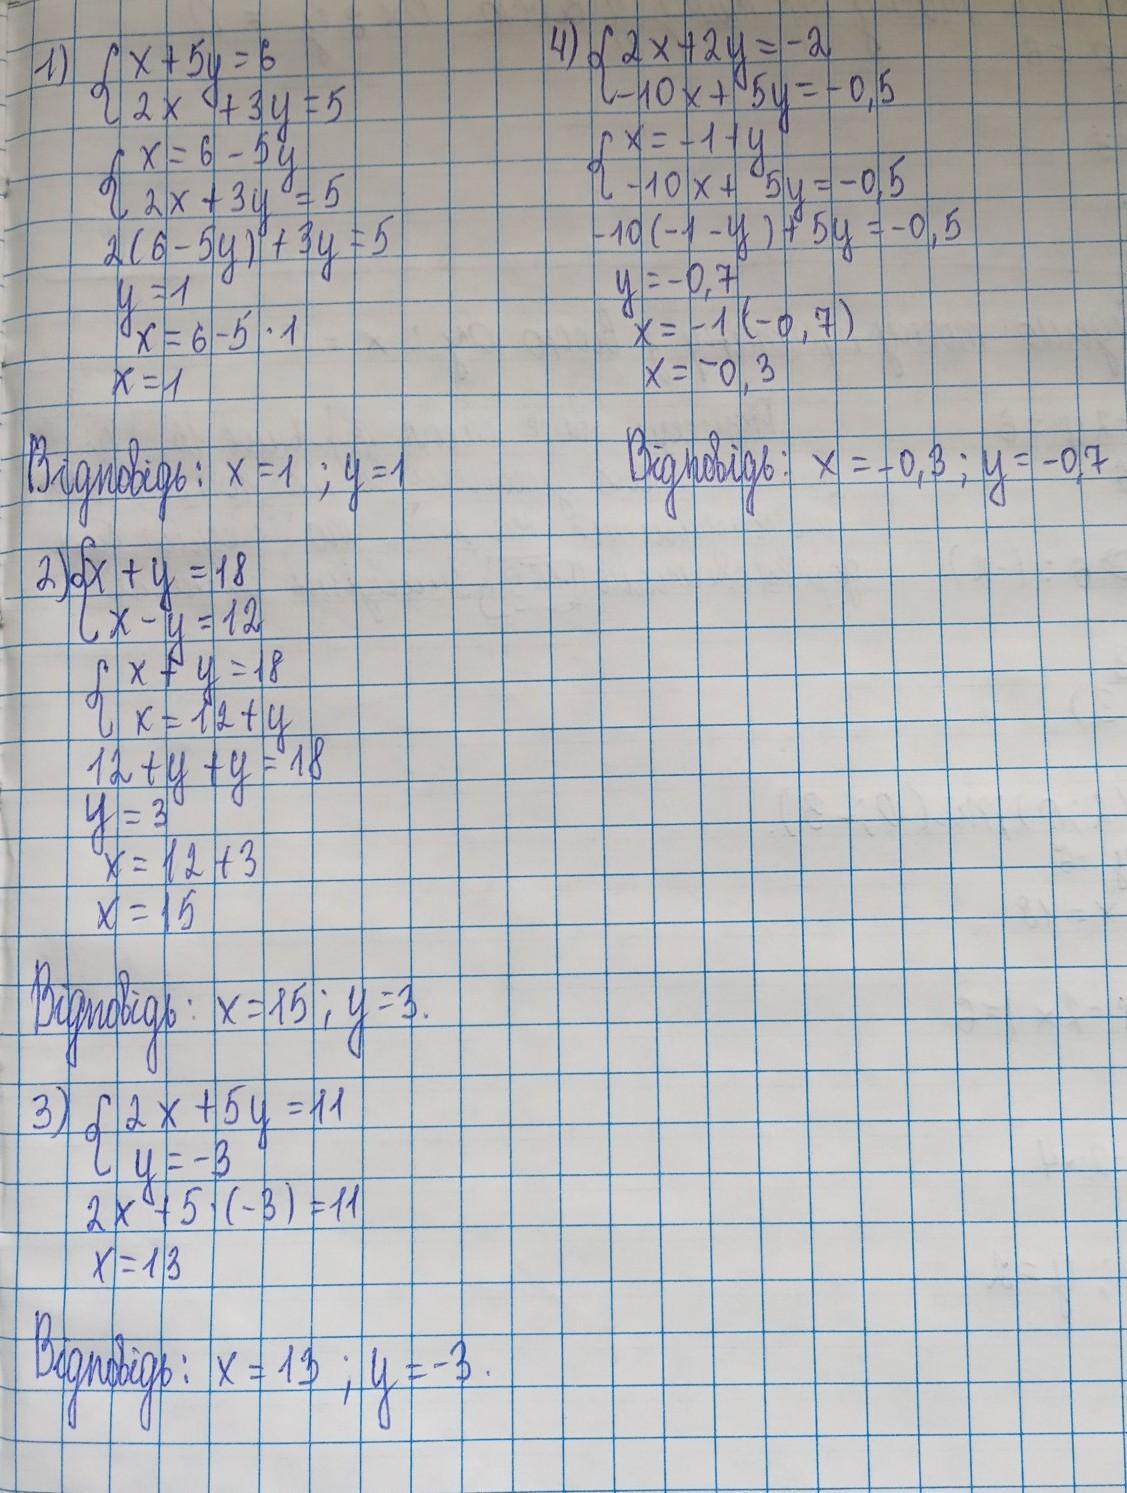 1) { x + 5y = 6
2x + 3y = 5
{ x = 6 - 5y
2x + 3y = 5
2(6 - 5y) + 3y = 5
y = 1
x = 6 - 5 · 1
x = 1
Відповідь: x = 1 ; y = 1
2) { x + y = 18
x - y = 12
{ x + y = 18
x = 12 + y
12 + y + y = 18
y = 3
x = 12 + 3
x = 15
Відповідь: x = 15 ; y = 3.
3) { 2x + 5y = 11
y = -3
2x + 5 · (-3) = 11
x = 13
Відповідь: x = 13 ; y = -3.
4) { 2x + 2y = -2
-10x + 5y = -0,5
{ x = -1 + y
-10x + 5y = -0,5
-10(-1 - y) + 5y = -0,5
y = -0,7
x = -1 (-0,7)
x = -0,3
Відповідь: x = -0,3 ; y = -0,7